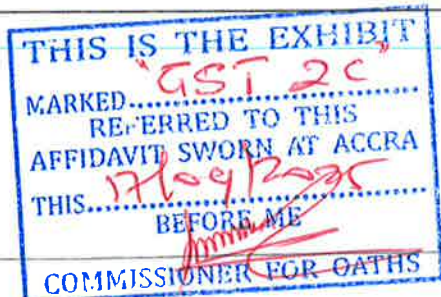 THIS IS THE EXHIBIT
MARKED........"GST 2C"
REFERRED TO THIS
AFFIDAVIT SWORN AT ACCRA
THIS....17/09/2025
BEFORE ME
COMMISSIONER FOR OATHS